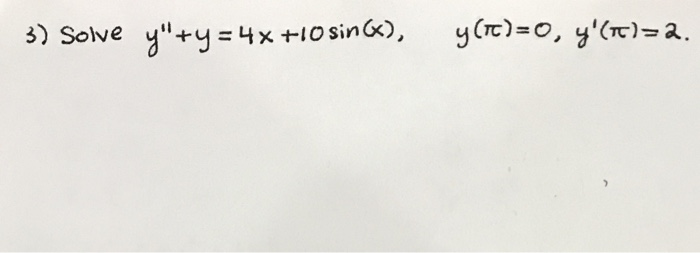 3) Solve y"+y=4x+10sin(x), y(π)=0, y'(π)=2.